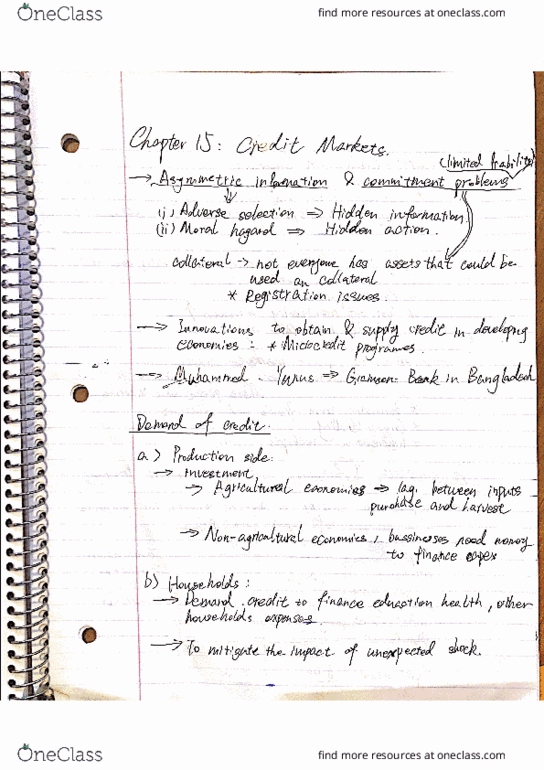 OneClass
find more resources at oneclass.com
Chapter 15: Credit Markets.
(limited liability)
→ Asymmetric information & commitment problems
(i) Adverse selection ⇒ Hidden information.
(ii) Moral hagard ⇒ Hidden action.
collateral → not everyone has assets that could be
used an collateral
* Registration issues.
→ Innovations to obtain & supply credit in developing
economies: * Microcredit programmes.
→ Muhammed. Yunus ⇒ Grameen Bank in Bangladesh
Demand of credit.
a) Production side:
→ Investment
→ Agricultural economies ⇒ lag. between inputs
purchase and harvest
→ Non-agricultural economies, bassinesses need money
to finance
b) Households:
→ Demand credit to finance education health, other
households expenses.
→ To mitigate the impact of unexpected shock.
OneClass
find more resources at oneclass.com